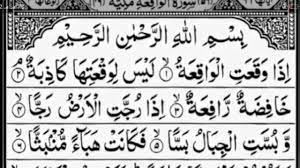 سُوْرَةُ الْوَاقِعَةِ مَكِّيَّةٌ
بِسْمِ اللهِ الرَّحْمٰنِ الرَّحِيْمِ
اِذَا وَقَعَتِ الْوَاقِعَةُ ۙ﴿١﴾ لَيْسَ لِوَقْعَتِهَا كَاذِبَةٌ ۘ﴿٢﴾
خَافِضَةٌ رَّافِعَةٌ ۙ﴿٣﴾ اِذَا رُجَّتِ الْاَرْضُ رَجًّا ۙ﴿٤﴾
وَّ بُسَّتِ الْجِبَالُ بَسًّا ۙ﴿٥﴾ فَكَانَتْ هَبَآءً مُّنْۢبَثًّا ۙ﴿٦﴾